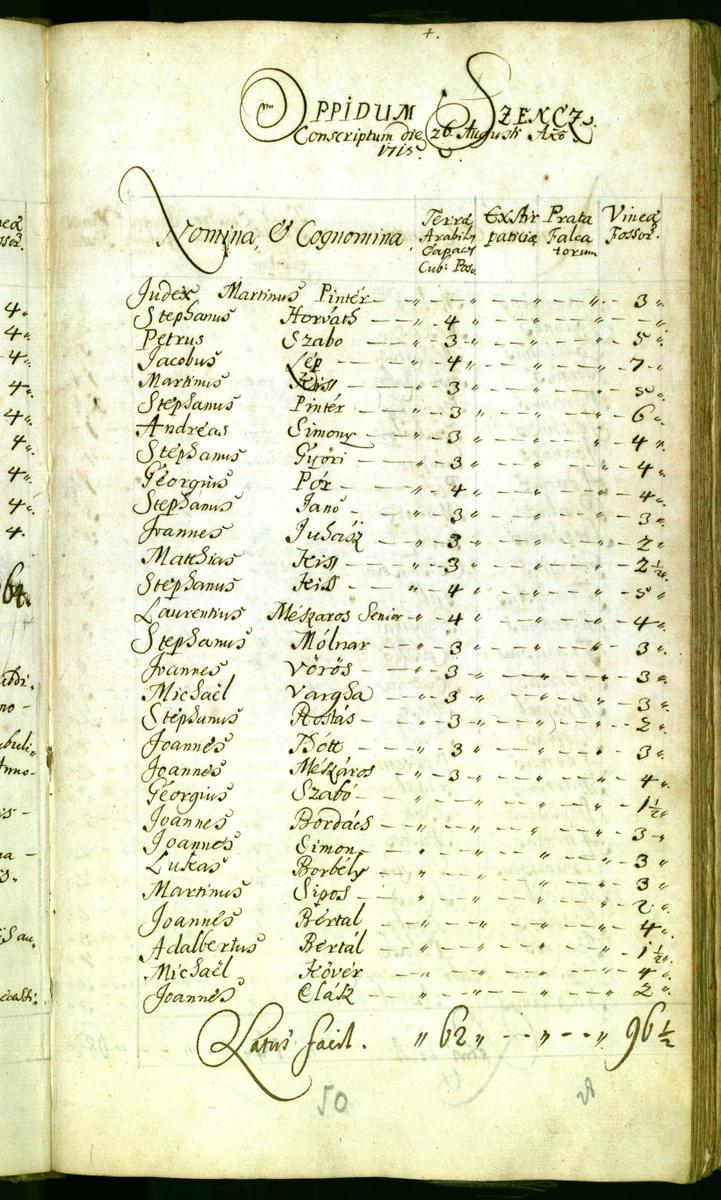 4.
OPPIDUM SZENCZ.
Conscriptum die 26. Augusti Año
1715.
Nomina, & Cognomina Terræ Arabilis Capacit Cub: Poso. Exstirpatitiæ Prata Falcatorum Vineæ Fossor.
Judex Martinus Pintér — „ — „ — „ — 3 „
Stephanus Horváth — 4 „ — „ — „ — „
Petrus Szabo — 3 „ — „ — „ — 5 „
Jacobus Lép — 4 „ — „ — „ — 7 „
Martinus Kiss — 3 „ — „ — „ — 5 „
Stephanus Pintér — 3 „ — „ — „ — 6 „
Andreas Simony — 3 „ — „ — „ — 4 „
Stephanus Győri — 3 „ — „ — „ — 4 „
Georgius Pór — 4 „ — „ — „ — 4 „
Stephanus Janó — 3 „ — „ — „ — 3 „
Joannes Juhász — 3 „ — „ — „ — 2 „
Matthias Kiss — 3 „ — „ — „ — 2 ½ „
Stephanus Kiss — 4 „ — „ — „ — 5 „
Laurentius Mészaros Senior — 4 „ — „ — „ — 4 „
Stephanus Mólnar — 3 „ — „ — „ — 3 „
Joannes Vörös — 3 „ — „ — „ — 3 „
Michaël Vargha — 3 „ — „ — „ — 3 „
Stephanus Rostás — 3 „ — „ — „ — 2 „
Joannes Bótt — 3 „ — „ — „ — 3 „
Joannes Mészáros — 3 „ — „ — „ — 4 „
Georgius Szabó — „ — „ — „ — 1 ½ „
Joannes Bordács — „ — „ — „ — 3 „
Joannes Simon — „ — „ — „ — 3 „
Lukas Borbély — „ — „ — „ — 3 „
Martinus Sipos — „ — „ — „ — 2 „
Joannes Bertal — „ — „ — „ — 4 „
Adalbertus Bertál — „ — „ — „ — 1 ½ „
Michaël Kövér — „ — „ — „ — 4 „
Joannes Clász — „ — „ — „ — 2 „
Latus facit. „ 62 „ — „ — „ 96 ½
50 28